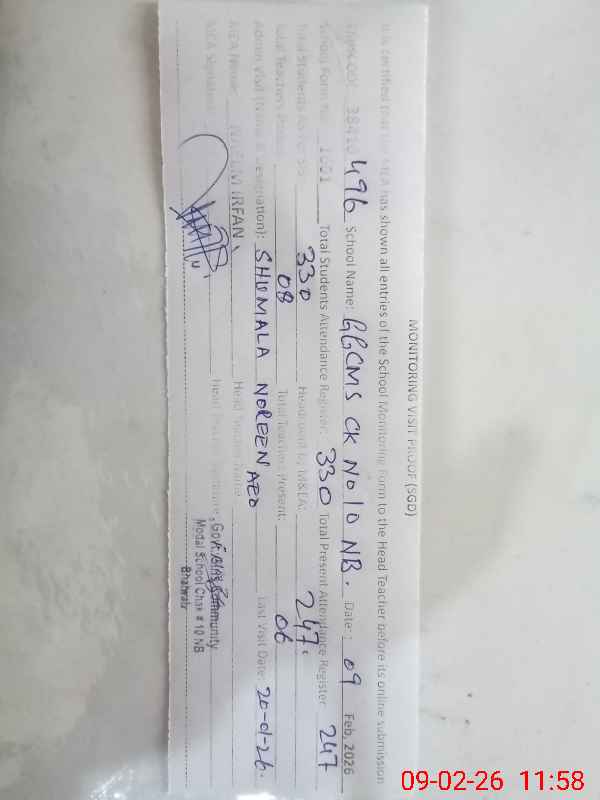 MONITORING VISIT PROOF (SGD)
It is certified that the MEA has shown all entries of the School Monitoring Form to the Head Teacher before its online submission
38410496 School Name: GGCMS CK No 10 NB. Date: 09 Feb, 2026
School Form No. 1601 Total Students Attendance Register: 330 Total Present Attendance Register 247
Total Students 330 Headcount by M&EA: 247.
Total Teachers 08 Total Teachers Present: 06
Admin Visit (Name & Designation): SHUMALA NOREEN AEO Last Visit Date: 20-01-26.
MEA Name: IRFAN Head Teacher Name
MEA Signature: Head Teacher Signature
Govt. Girls Community
Modal School Chak # 10 NB
Bhalwal
09-02-26 11:58